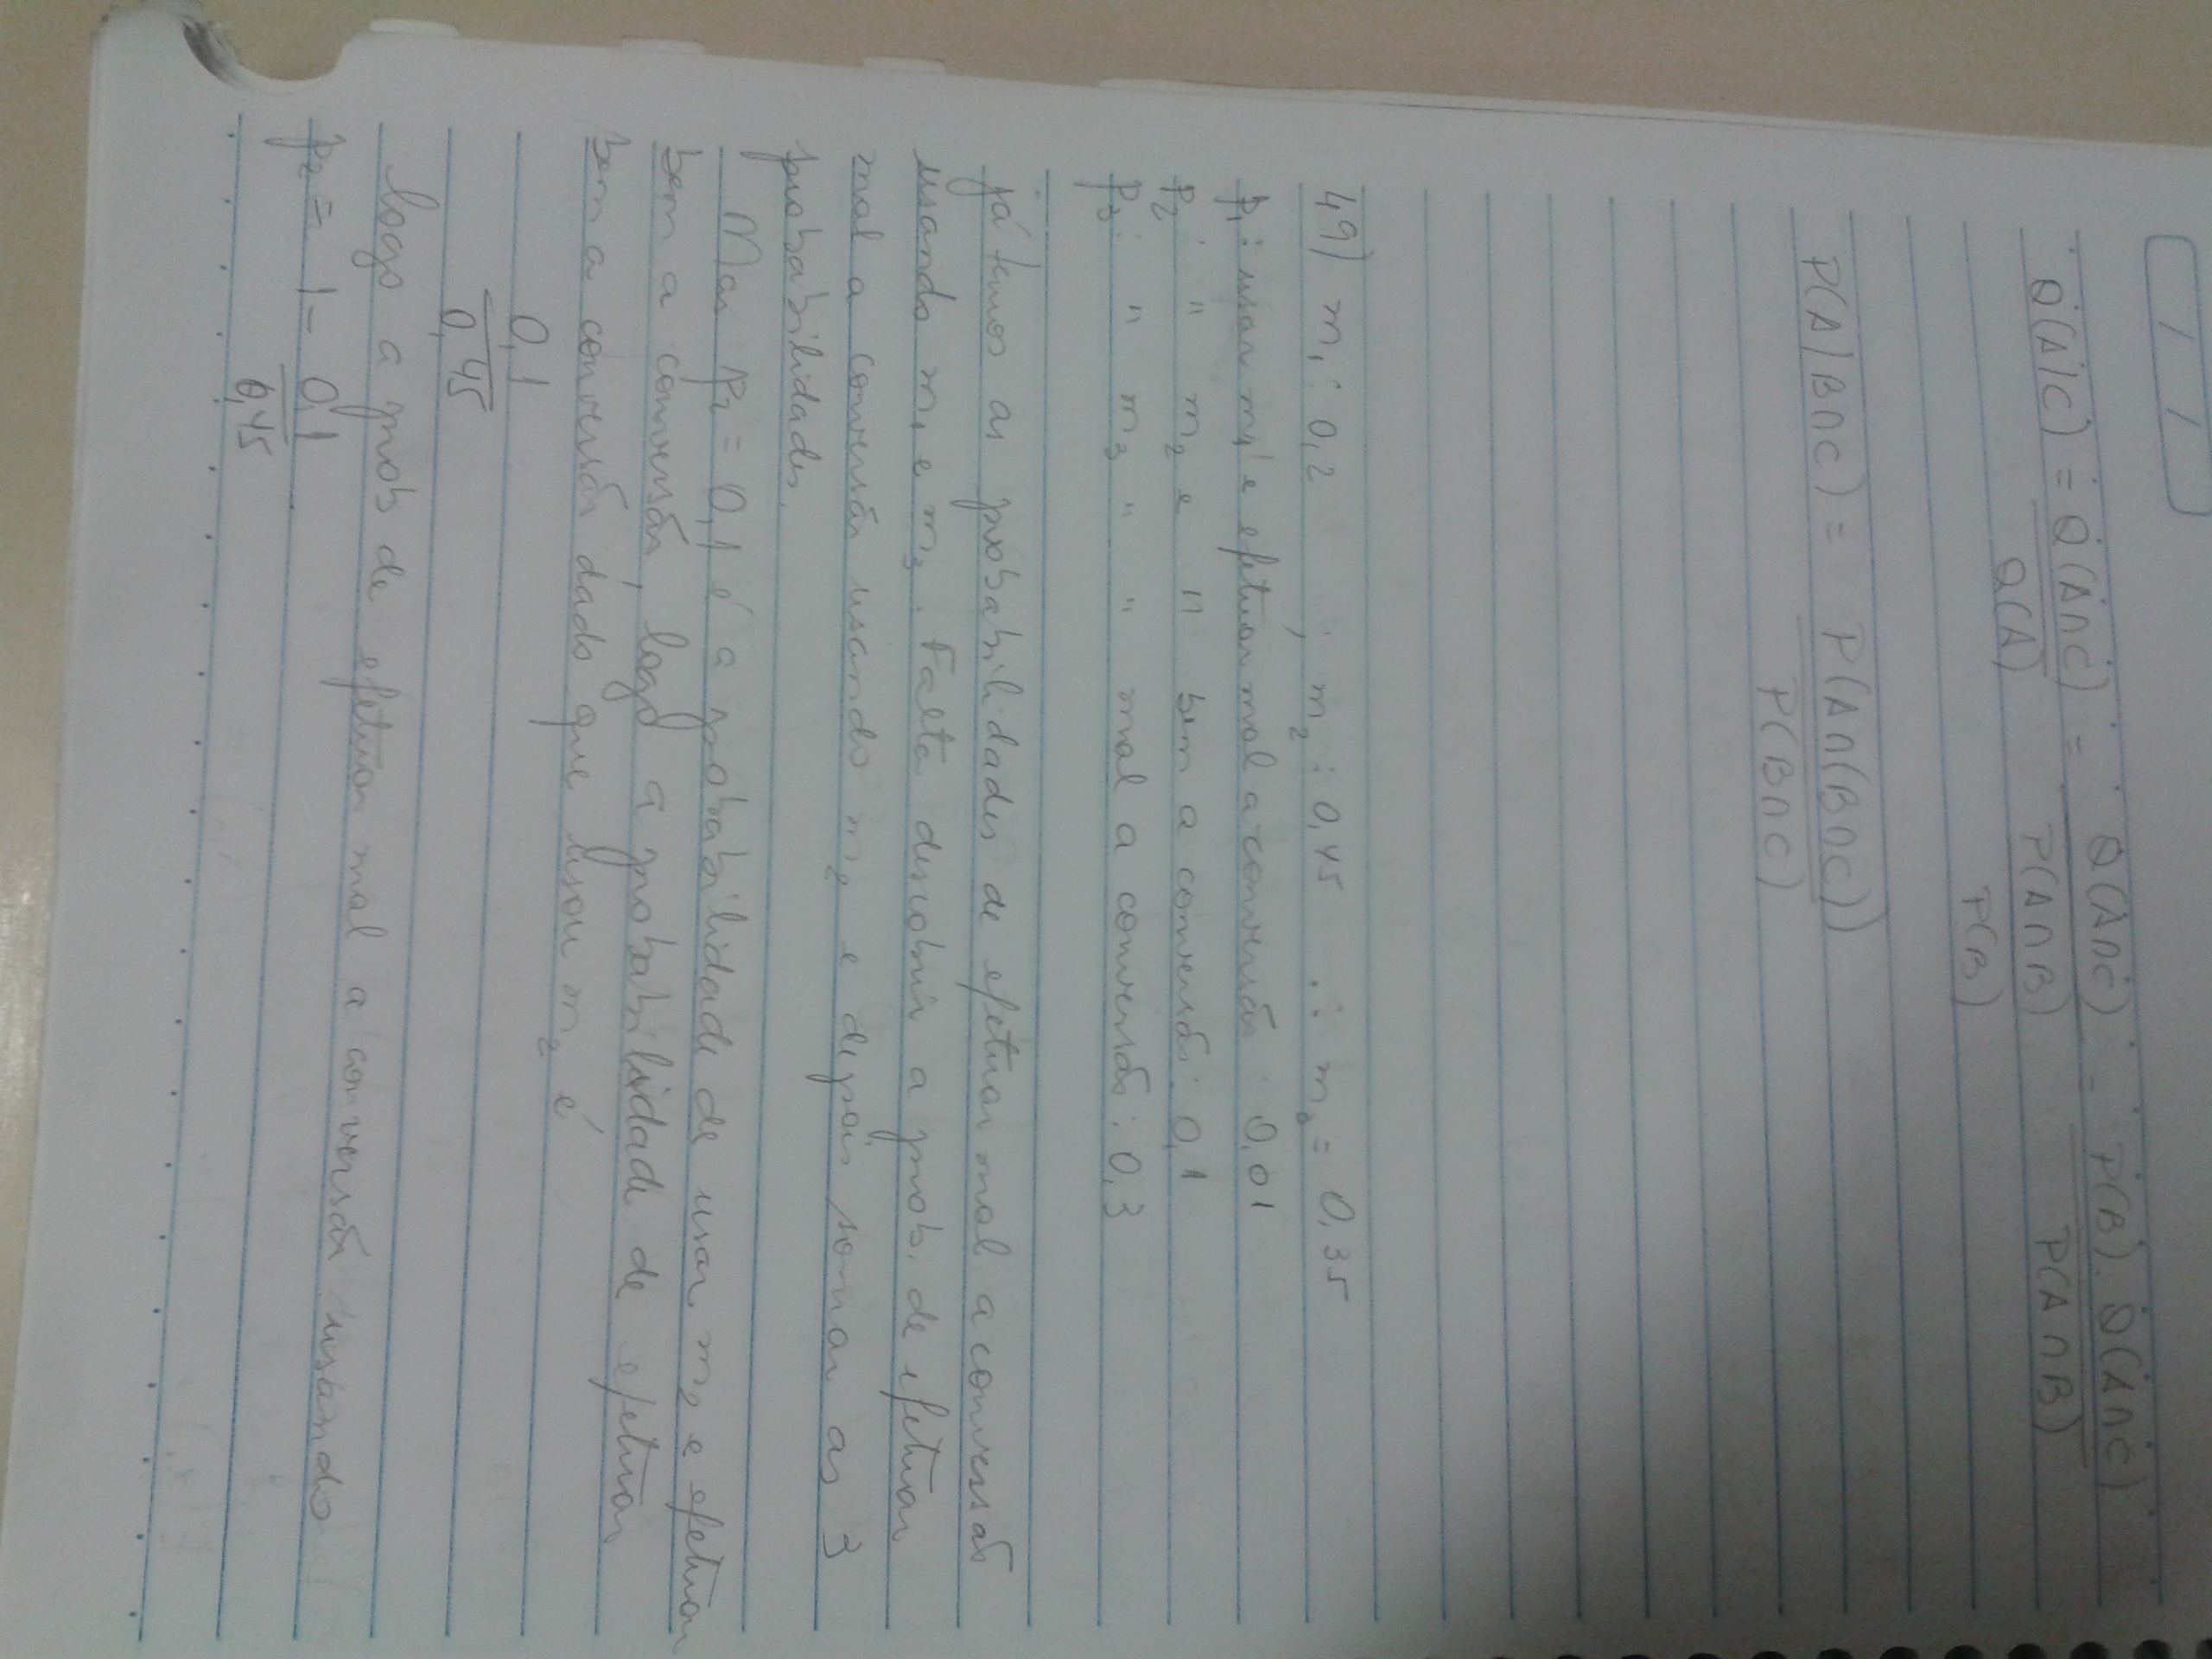 Q(A|C) = Q(A∩C) = Q(A∩C) = P(B). Q(A∩C)
Q(A) P(A∩B) P(A∩B)
P(B)
P(A|B∩C) = P(A∩(B∩C))
P(B∩C)
49) m₁: 0,2 , m₂: 0,45 ∴ m₃ = 0,35
p₁: usar m₁ e efetuar mal a conversão: 0,01
p₂: " m₂ e " bem a conversão: 0,1
p₃: " m₃ " " mal a conversão: 0,3
já temos as probabilidades de efetuar mal a conversão
usando m₁ e m₃. Falta descobrir a prob. de efetuar
mal a conversão usando m₂ e depois somar as 3
probabilidades.
Mas p₂ = 0,1 é a probabilidade de usar m₂ e efetuar
bem a conversão, logo a probabilidade de efetuar
bem a conversão dado que usou m₂ é
0,1
0,45
logo a prob de efetuar mal a conversão usando
p₂ = 1 - 0,1
0,45